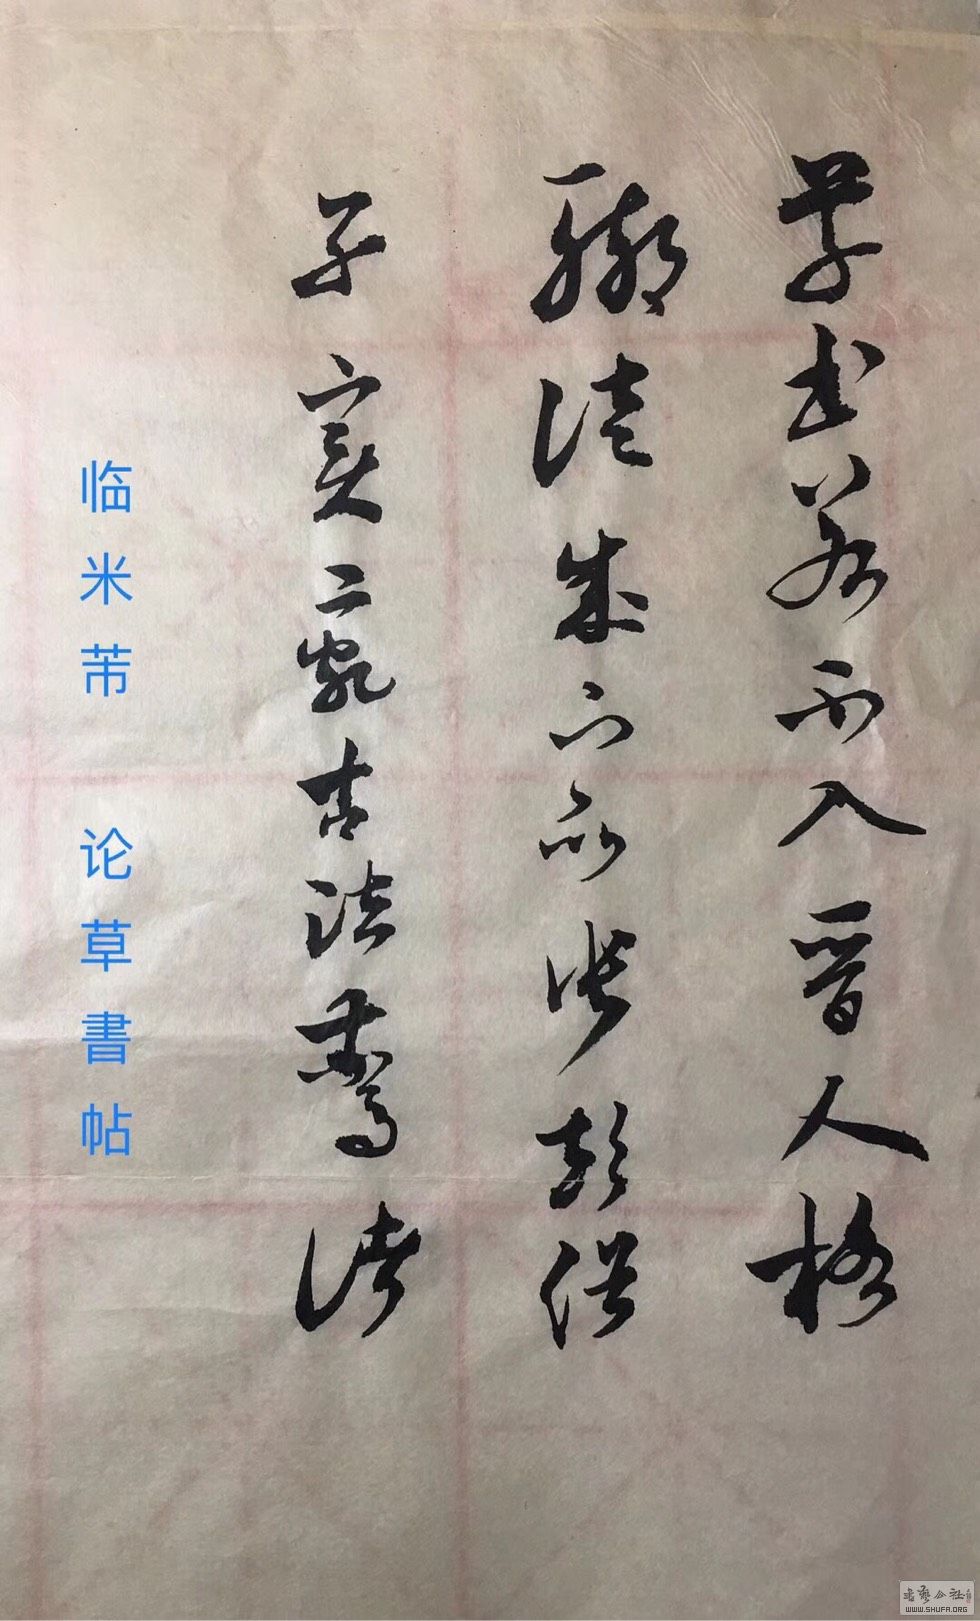 草書若不入晋人格
輒徒成下品張顛俗
子變亂古法驚諸
临米芾 论草書帖
書藝公社
WWW.SHUFA.ORG